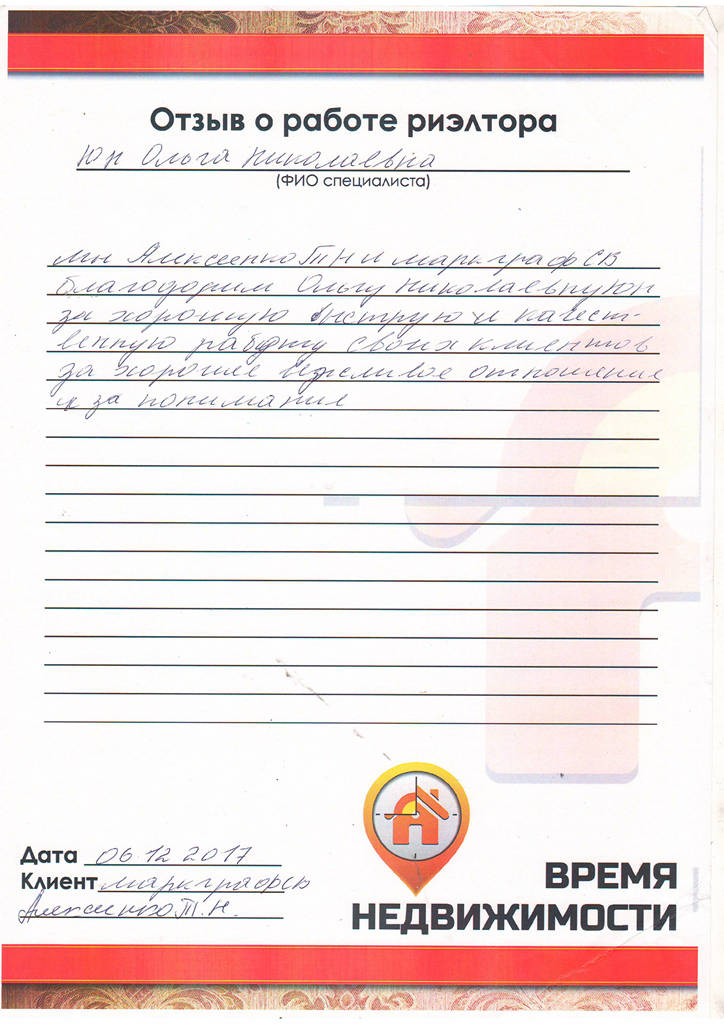 Отзыв о работе риэлтора
Юн Ольга Николаевна
(ФИО специалиста)
мы Алексеенко Т Н и маркграф СВ
благодорим Ольгу Николаевну Юн
за хорошую быструю и качест-
венную работу своих клиентов
за хорошее вежливое отношение
и за понимание
Дата 06 12 2017
Клиент маркграф СВ
Алексеенко Т. Н.
ВРЕМЯ
НЕДВИЖИМОСТИ